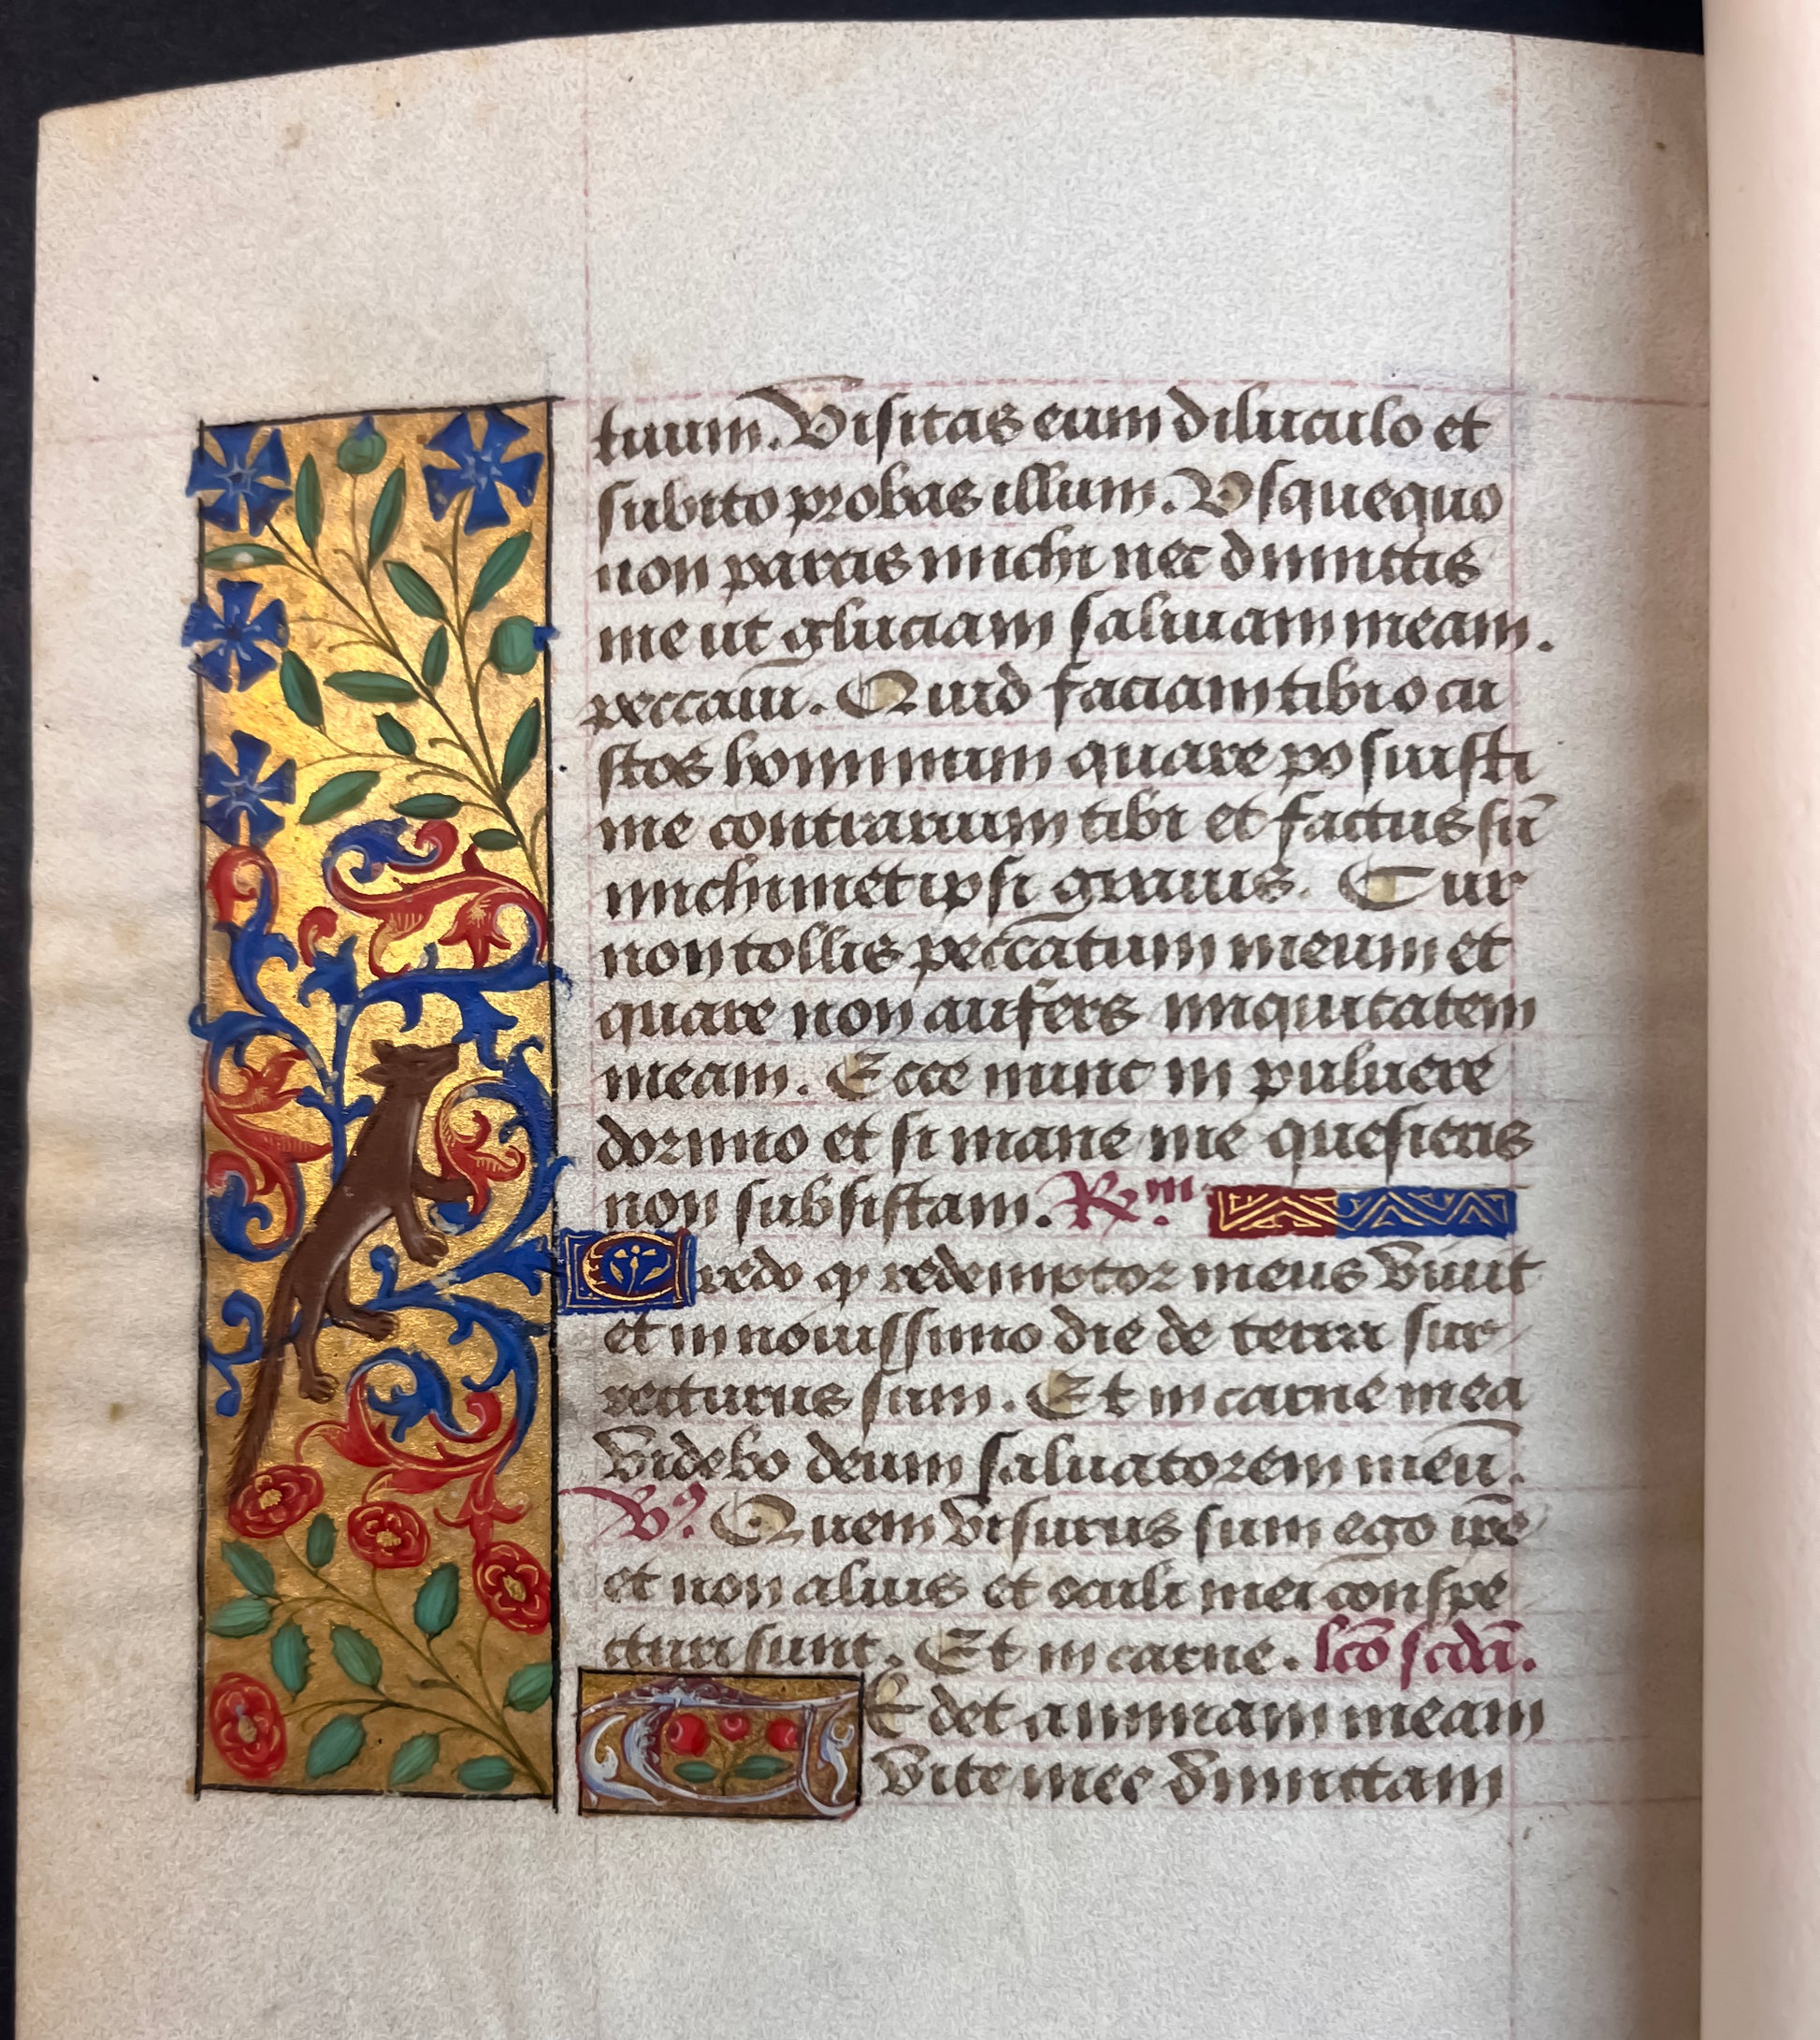 tuum. Visitas eum diluculo et
subito probas illum. Vsquequo
non parcis michi nec dimittis
me ut gluciam saliuam meam.
peccaui. Quid faciam tibi o cu
stos hominum quare posuisti
me contrarium tibi et factus sū
michimet ipsi grauis. Cur
non tollis peccatum meum et
quare non aufers iniquitatem
meam. Ecce nunc in puluere
dormio et si mane me quesieris
non subsistam. Rm.
Credo ꝙ redemptor meus viuit
et in nouissimo die de terra sur
recturus sum. Et in carne mea
videbo deum saluatorem meū.
V. Quem visurus sum ego ip̄e
et non alius et oculi mei conspe
cturi sunt. Et in carne. lc̄o sc̄da.
TEdet animam meam
vite mee dimittam